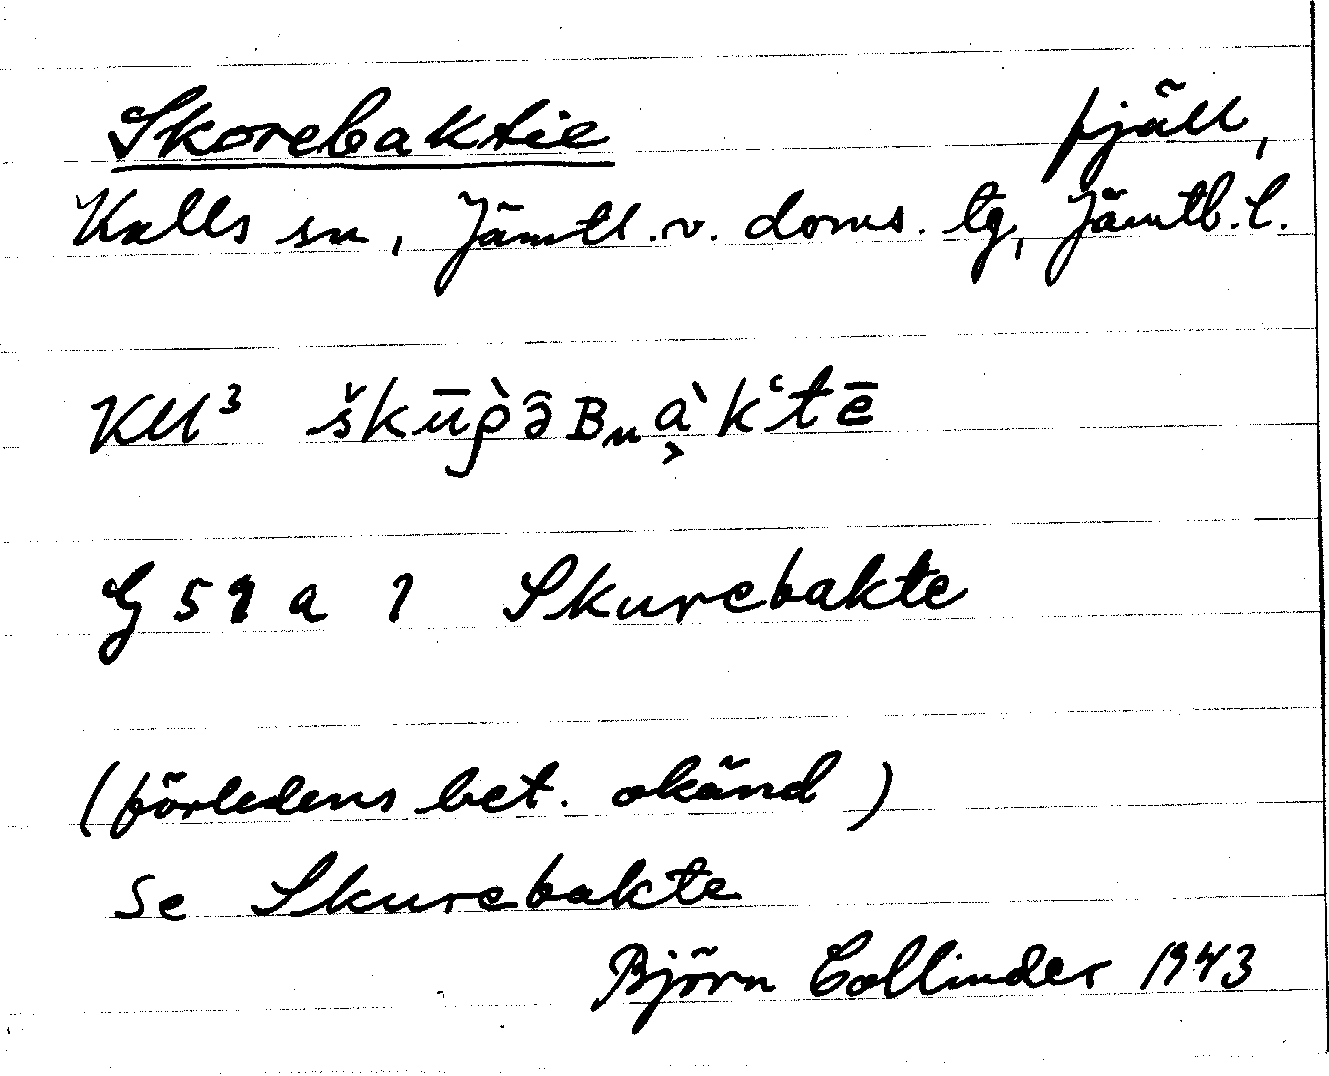 Skorebaktie fjäll,
Kalls sn, Jämtl. v. doms. tg, Jämtl. l.
KM³ šk
G 59 a 1 Skurebakte
(förledens bet. okänd)
Se Skurebakte
Björn Collinder 1943